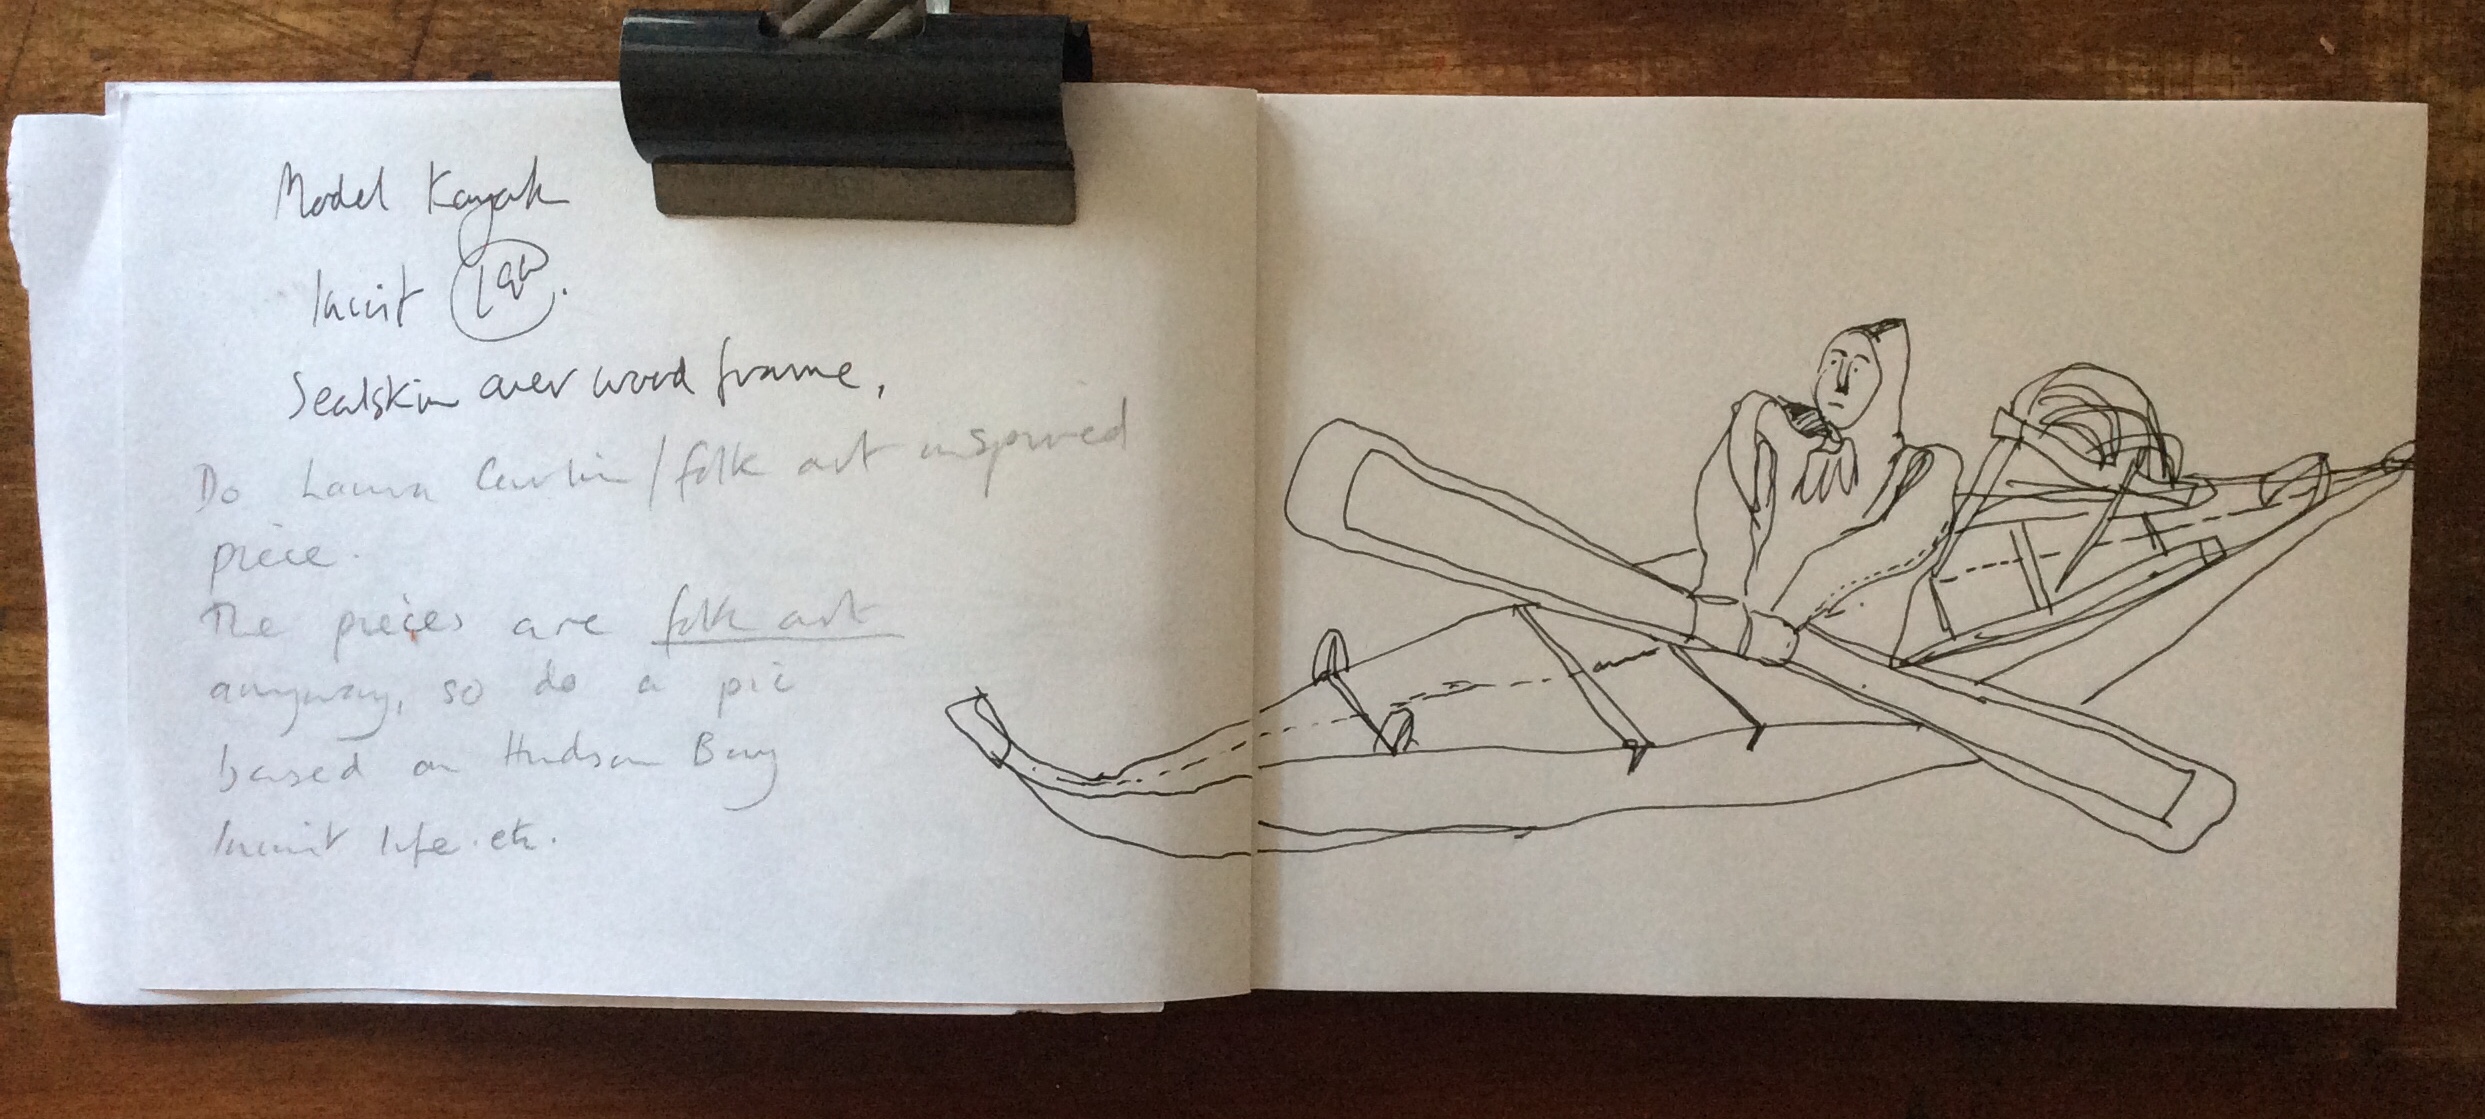 Model Kayak
Inuit
Sealskin over wood frame,
Do Laura Carlin/folk art inspired
piece.
The pieces are folk art
anyway, so do a pic
based on Hudson Bay
Inuit life. etc.